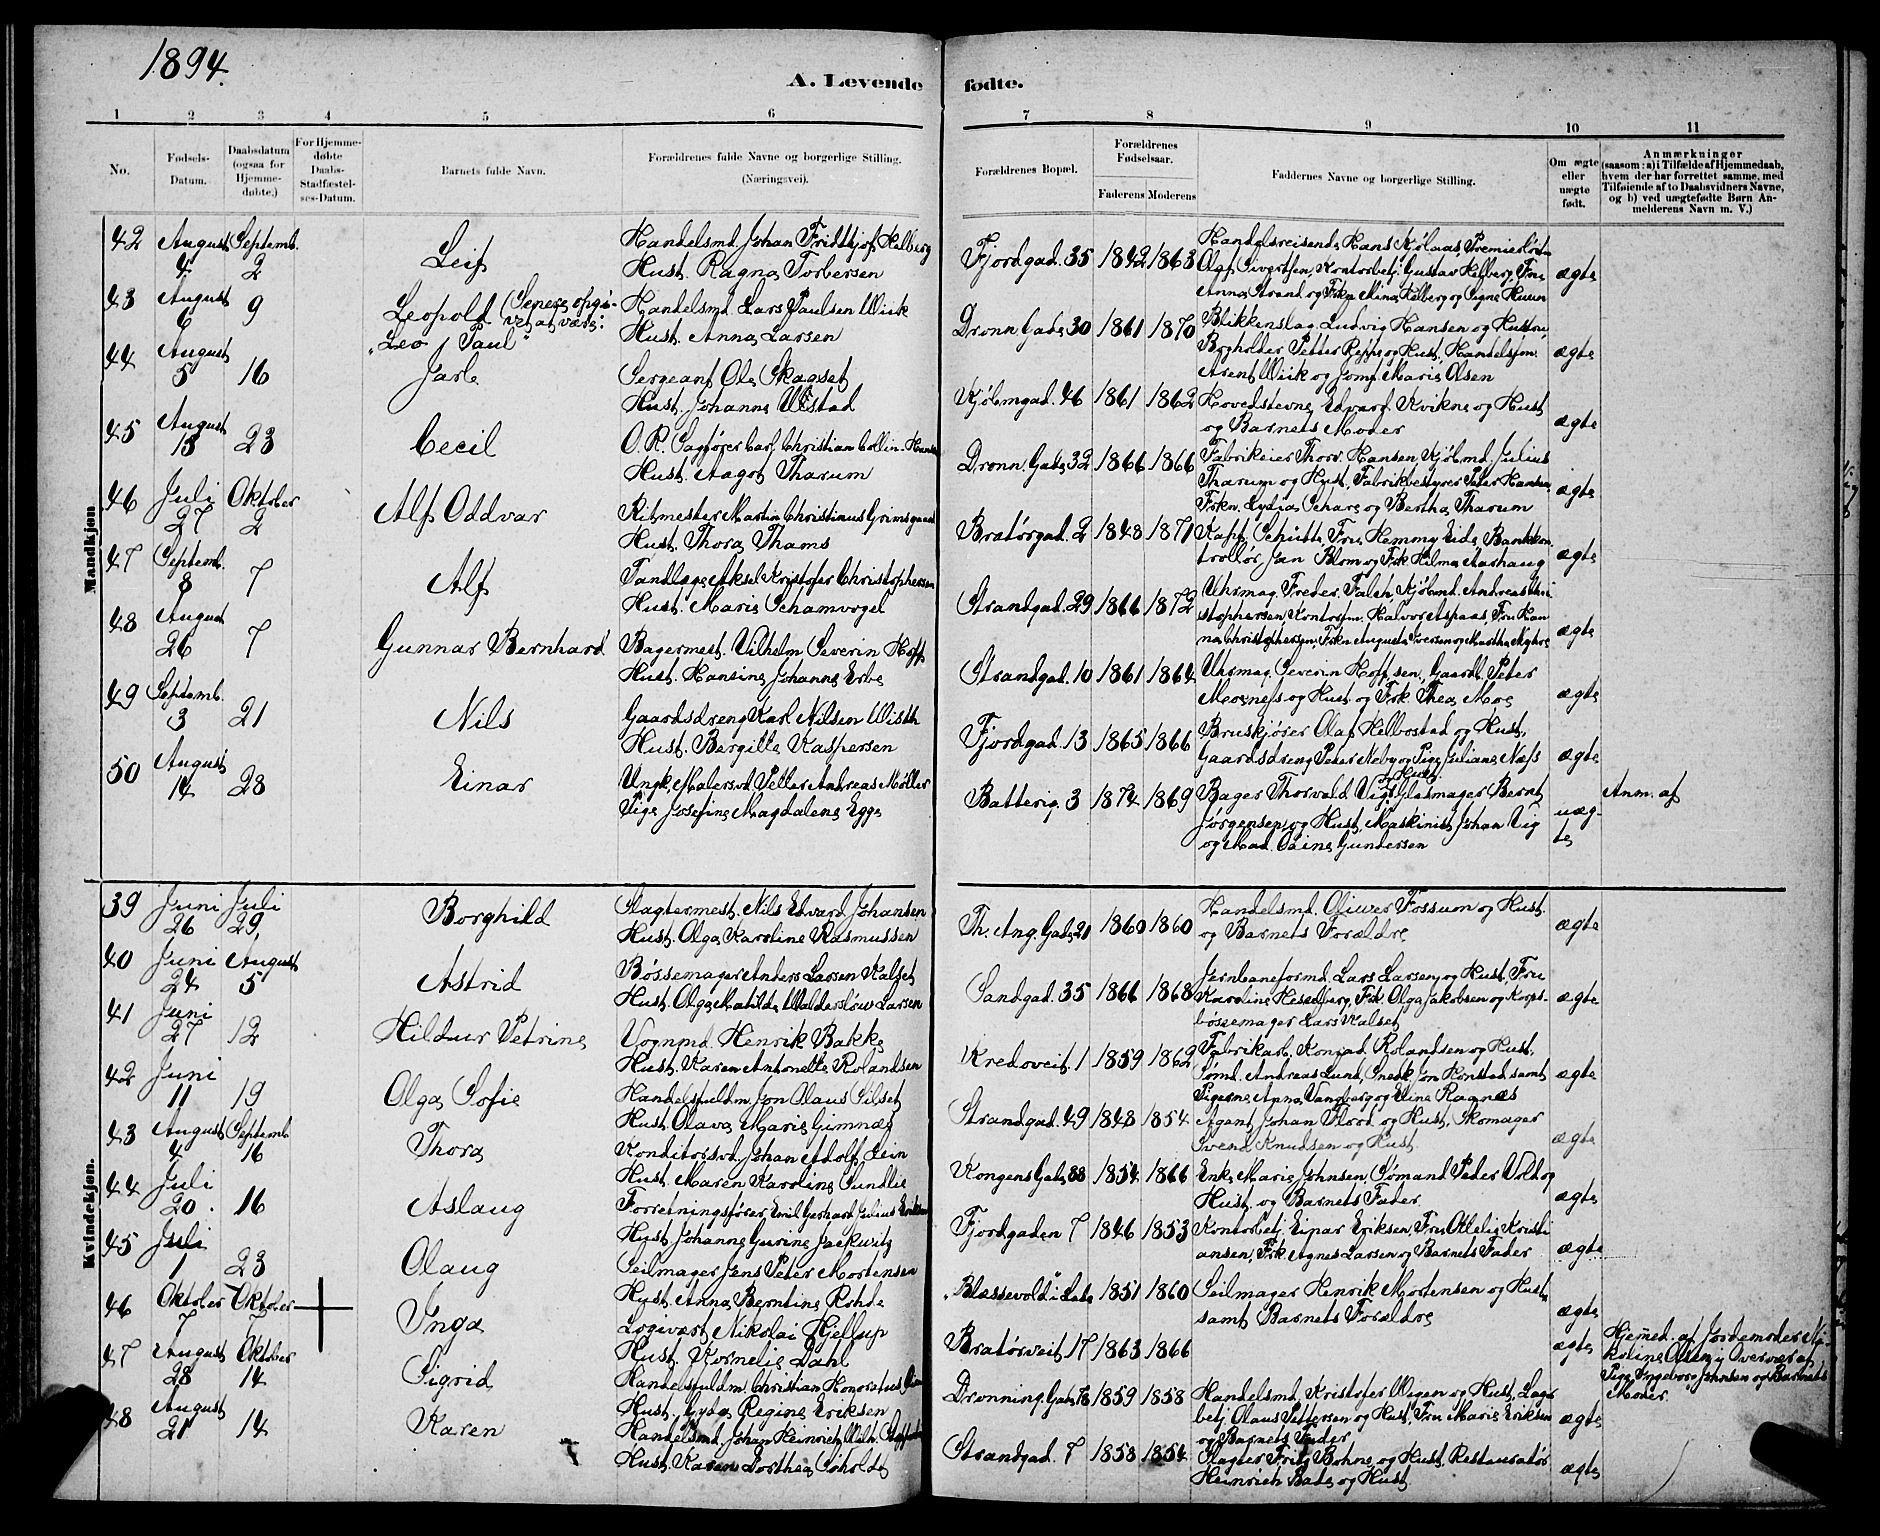 1894.
A. Levende fødte.
1 2 3 4 5 6 7 8 9 10 11
No.
Fødsels-Datum.
Daabsdatum (ogsaa for Hjemme-døbte.)
For Hjemme-døbte Daabs-Stadfæstel-ses-Datum.
Barnets fulde Navn.
Forældrenes fulde Navne og borgerlige Stilling. (Næringsvei).
Forældrenes Bopæl.
Forældrenes Fødselsaar.
Faderens Moderens
Faddernes Navne og borgerlige Stilling.
Om ægte eller uægte født.
Anmærkninger (saasom: a) i Tilfælde af Hjemmedaab, hvem der har forrettet samme, med Tilføiende af to Daabsvidners Navne, og b) ved uægtefødte Børn An-melderens Navn m. V.)
Mandkjøn
42 August 4 Septemb. 2 Leif
Handelsmd. Johan Fridthjof Helberg
Hust. Ragna Torbersen
Fjordgad. 35 1842 1863
Handelsreisende Hans Kjølaas, Premierløitn.
Olaf Sivertsen, Kontorbetj. Gustav Helberg, Fru
Anna Strand og Frkn Mina Helberg og Signe Huun
ægte
43 August 6 9 Leopold (Senere opgi-vet at være: "Leo Paul"
Handelsmd. Lars Paulsen Wiik
Hust. Anna Larsen
Dronn. Gade 30 1861 1870
Blikkenslag. Ludvig Hansen og Hustru,
Bogholder Petter Reppe og Hust, Handelsfm.
Arent Wiik og Jomf. Marie Olsen
ægte
44 August 5 16 Jarle
Sergeant Ole Skagset
Hust. Johanne Ulstad
Kjøbmgad. 46 1861 1862
Hovedstevne Edvard Kvikne og Hust
og Barnets Moder
ægte
45 August 13 23 Cecil
O. R. Sagfører Carl Christian Collin Hansen
Hust. Aagot Tharum
Dronn. Gade 32 1866 1866
Fabrikeier Thorv. Hansen Kjøbmd. Julius
Tharum og Hust, Fabrikbestyrer Peter Hansen,
Frkn. Lydia Schare og Bertha Tharum
ægte
46 Juli 27 Oktober 2 Alf Oddvar
Ritmester Martin Christinus Grimsgaard
Hust. Thora Thams
Bratørgad. 2 1848 1871
Kapt. Schütte, Fru Hemmy Eide, Bankkon-
trollør Jan Blom og Frk Helma Aarhaug
ægte
47 Septemb. 8 7 Alf
Tandlæge Aksel Kristofer Christophersen
Hust. Marie Schamvogel
Strandgad. 29 1866 1872
Uhrmag. Freder. Faleh, Kjøbmd. Andreas Chri-
stophersen, Kontorfm. Halvor Aspaas, Fru Han-
na Christophersen, Frkn Augusta Iversen og Martha
ægte
48 August 26 7 Gunnar Bernhard
Bagermest. Vilhelm Severin Hoff
Hust. Hansine Johanne Erbe
Strandgad. 10 1861 1864
Uhrmag. Severin Hoff, sen, Gaardb. Peter
Mosness og Hust og Frk. Thea Moe
ægte
49 Septemb. 3 21 Nils
Gaardsdreng Karl Nilsen Wisth
Hust. Bergitte Kaspersen
Fjordgad. 13 1865 1866
Bruskjører Olaf Helbostad og Hust,
Gaardsdreng Peter Neby og Pige Juliane Næss
ægte
50 August 14 28 Einar
Ungk. Malersvd. Petter Andreas Møller
Pige Josefine Magdalene Egge
Batterig. 3 1874 1869
Bager Thorvald Vig og Hust, Glasmager Bernt
Jørgensen og Hust, Maskinist Johan Vig
og Mad. Oline Gundersen
uæg-te
Anm. af
Kvindekjøn.
39 Juni 26 Juli 29 Borghild
Slagtermest. Nils Edvard Johansen
Hust. Olga Karoline Rasmussen
Th. Ang. Gade 21 1860 1860
Handelsmd. Oliver Fossum og Hust.
og Barnets Forældre
ægte
40 Juni 24 August 5 Astrid
Bøssemager Anders Larsen Kalset
Hust. Olga Matilde Walderslow Larsen
Sandgad. 35 1866 1868
Jernbaneformd. Lars Larsen og Hust, Fru
Karoline Hesselberg, Frk. Olga Jakobsen og Korps-
bøssemager Lars Kalset
ægte
41 Juni 27 12 Hildur Petrine
Vognmd. Henrik Bakke
Hust. Karen Antonette Rolandsen
Kredsveit 1 1859 1862
Fabrikarb. Konrad Rolandsen og Hust,
Sømd. Andreas Lund, Snedk. Jon Konstad samt
Pigerne Anna Vangberg og Eline Ragnæs
ægte
42 Juni 11 19 Olga Sofie
Handelsfuldm. Jon Olaus Silset
Hust. Olava Marie Gimnæs
Strandgad. 49 1848 1854
Agent Johan Flood og Hust, Skomager
Svend Knudsen og Hust
ægte
43 August 4 Septemb. 16 Thora
Konditorsvd. Johan Adolf Lein
Hust. Maren Karoline Sundlie
Kongens Gade 88 1854 1866
Enke Marie Johnsen, Sømand Peder Vold og
Hust. og Barnets Fader
ægte
44 Juli 20. 16 Aslaug
Forretningsfører Emil Gerhard Julius Eriksen
Hust. Johanne Gurine Jackwitz
Fjordgaden 7 1846 1853
Kontorbetj. Einar Eriksen, Fru Ottelie Kristi-
ansen, Frk. Agnes Larsen og Barnets Fader
ægte
45 Juli 1 23 Olaug
Seilmager Jens Peter Mortensen
Hust. Anna Berntine Rohde
"Blæssevold" i Lade 1851 1860
Seilmager Henrik Mortensen og Hust.
samt Barnets Forældre
ægte
46 Oktober 7 Oktober 7 Inga
Logivært Nikolai Hjellup
Hust. Kornelie Dahl
Bratørveit 17 1863 1866
ægte
Hjemmed. af Jordemoder Ni-
koline Olsen i Overvær af
Pige Ingeborg Johnsen og Barnets
Moder.
47 August 28 Oktober 14 Sigrid
Handelsfuldm. Christian Honoratus
Hust. Lyda Regine Eriksen
Dronning. Gade 16 1859 1858
Handelsmd. Kristofer Wigen og Hust, Lager-
betj. Olaus Pettersen og Hust, Fru Marie Eriksen
og Barnets Fader
ægte
48 August 21 14 Karen
Handelsmd. Johan Heinrich Wilh.
Hust. Karen Dorthea Soholdt
Strandgad. 7 1858 1854
Slagter Fritz Bohne og Hust, Restauratør
Heinrich Bade og Hust
ægte